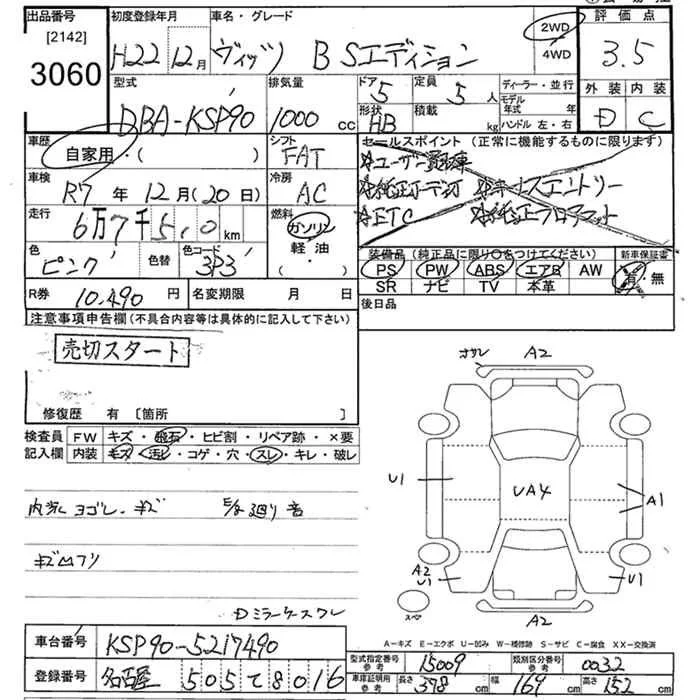 出品番号
[2142]
3060
初度登録年月
H22 12月
車名・グレード
ヴィッツ B Sエディション
2WD
4WD
評価点
3.5
外装 内装
D C
型式
DBA-KSP90
排気量
1000 cc
ドア
5
定員
5 人
形状
HB
積載
kg
ディーラー・並行
モデル年式 年
ハンドル 左・右
車歴
自家用・( )
シフト
FAT
車検
R7 年 12月 (20日)
冷房
AC
走行
6万7千5,0 km
燃料
ガソリン
軽・油
色
ピンク
色替
色コード
3P3
セールスポイント (正常に機能するものに限ります)
☆ユーザー買取車
☆純正オーディオ ☆キーレスエントリー
☆ETC ☆純正フロアマット
装備品 (純正品に限り○をつけてください)
新車保証書
PS PW ABS エアB AW
SR ナビ TV 本革
有・無
R券 10.490 円
名変期限 月 日
後日品
注意事項申告欄(不具合内容等は具体的に記入して下さい)
売切スタート
修復歴 有 [箇所 ]
検査員記入欄
FW キズ・飛石・ヒビ割・リペア跡・×要
内装 キズ・汚レ・コゲ・穴・スレ・キレ・破レ
内装ヨゴレ・キズ
E/g 廻り音
キズ凹アリ
Dミラーケースワレ
A2
A2
U1
UA4
A1
A2
U1
U1
スペア
A-キズ E-エクボ U-凹み W-補修跡 S-サビ C-腐食 XX-交換済
車台番号 KSP90-5217490
登録番号 名古屋 505 て 8016
型式指定番号 参考 15009
類別区分番号 参考 0032
車庫証明用 参考 長さ 378 cm 幅 169 cm 高さ 152 cm